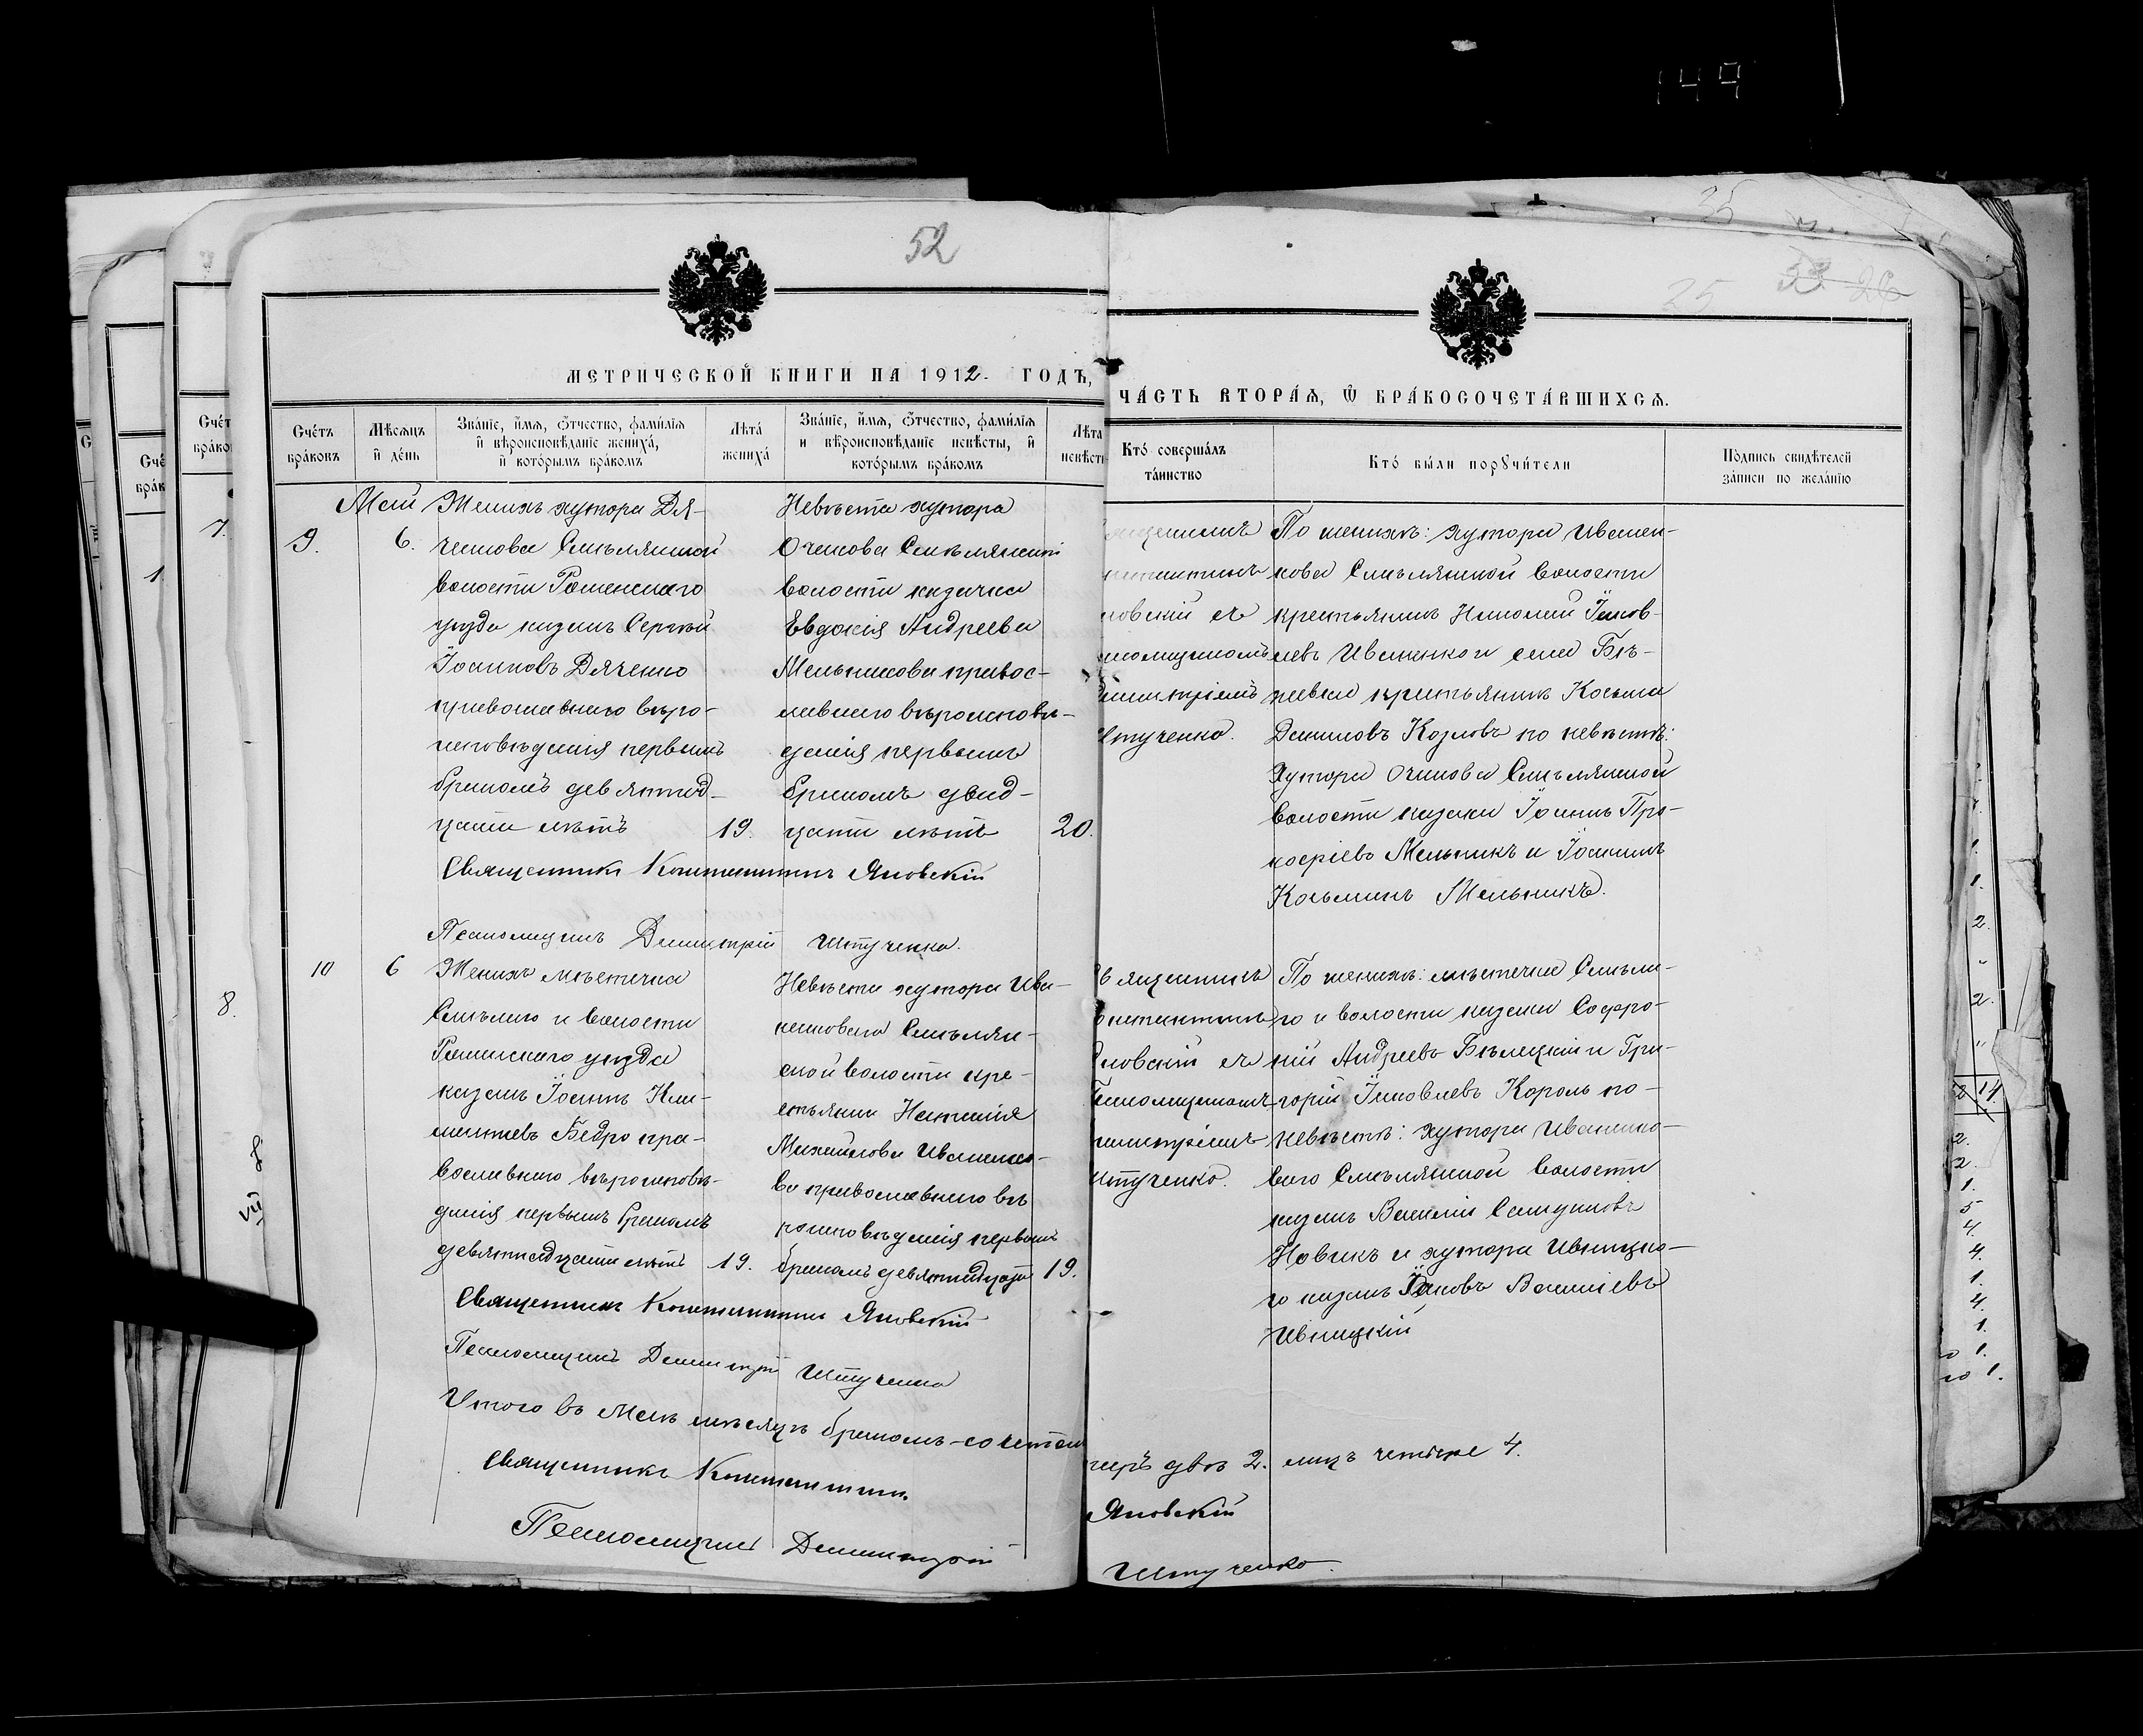 149
52
35
25
33 26
МЕТРИЧЕСКОЙ КНИГИ НА 1912. ГОДЪ,
ЧА́СТЬ ВТОРА́Ѧ, Ѽ БРА́КОСОЧЕТА́ВШИХСѦ.
Сче́тъ бра́ковъ
Мѣ́сѧцъ и҆ де́нь
Зва́нїе, и҆́мѧ, ѻ҆́тчество, фами́лїѧ и҆ вѣроисповѣ́данїе жениха́, и҆ кото́рымъ бра́комъ
Лѣта́ жениха́
Зва́нїе, и҆́мѧ, ѻ҆́тчество, фами́лїѧ и вѣроисповѣ́данїе невѣ́сты, и҆ кото́рымъ бра́комъ
Лѣта невѣсты
Кто̀ соверша́лъ та́инство
Кто̀ бы́ли порꙋчи́тели
По́дпись свидѣ́телей за́писи по жела́нїю
Май
9.
6.
Женихъ хутора Дя-
чкова Смѣлянской
волости Роменскаго
уѣзда казакъ Сергѣй
Іоакимовъ Дяченко
православнаго вѣро-
исповѣданія первымъ
бракомъ девятнад-
цати лѣтъ
19.
Невѣста хутора
Очкова Смѣлянской
волости казачка
Евдокія Андреева
Мельникова правос-
лавнаго вѣроисповѣ-
данія первымъ
бракомъ двад-
цати лѣтъ
20.
Священникъ Константинъ Яновскій
Псаломщикъ Димитрій Штученко.
По женихѣ: хутора Ивамен-
кова Смѣлянской волости
крестьянинъ Николай Іаков-
левъ Иваненко и села Бѣ-
ревки крестьянинъ Косьма
Даниловъ Козловъ по невѣстѣ:
хутора Очкова Смѣлянской
волости казаки Іоаннъ Про-
кофіевъ Мельникъ и Іоакимъ
Косьминъ Мельникъ.
10
6
Женихъ мѣстечка
Смѣлаго и волости
Роменскаго уѣзда
казакъ Іоаннъ Кли-
ментьевъ Бедро пра-
вославнаго вѣроисповѣ-
данія первымъ бракомъ
девятнадцати лѣтъ
19.
Невѣста хутора Ива-
ненкова Смѣлян-
ской волости кре-
стьянка Наталія
Михайлова Иваненко-
ва православнаго вѣ
роисповѣданія первымъ
бракомъ девятнадцати
19.
Священникъ
Константинъ
Яновскій съ
Псаломщикомъ
Димитріемъ
Штученко.
По женихѣ: мѣстечка Смѣла-
го и волости казаки Софро-
ній Андреевъ Бѣлецкій и Гри-
горій Іаковлевъ Король по
невѣстѣ: хутора Иваненко-
ваго Смѣлянской волости
казакъ Василій Самуиловъ
Новикъ и хутора Ивницко-
го казакъ Іаковъ Василіевъ
Ивницкій
Священникъ Константинъ Яновскій
Псаломщикъ Димитрій Штученко
Итого въ маѣ мѣсяцѣ бракомъ сочетан
паръ двѣ 2. лицъ четыре 4.
Священникъ Константинъ Яновскій
Псаломщикъ Димитрій Штученко.